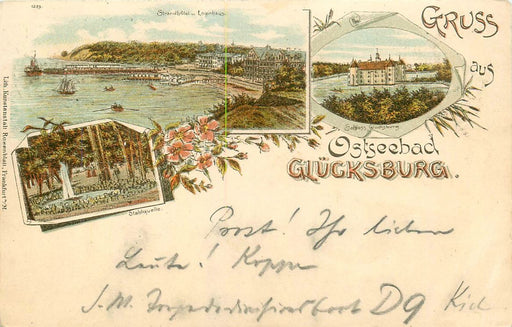 1229.
Strandhôtel u. Logirhaus.
GRUSS
aus
Schloss Glücksburg
Ostseebad
GLÜCKSBURG.
Stahlquelle.
Lith. Kunstanstalt Rosenblatt, Frankfurt a/M.
Prost! Ihr lieben
Leute! Koppe
S.M. Torpedodivisionsboot D9 Kiel